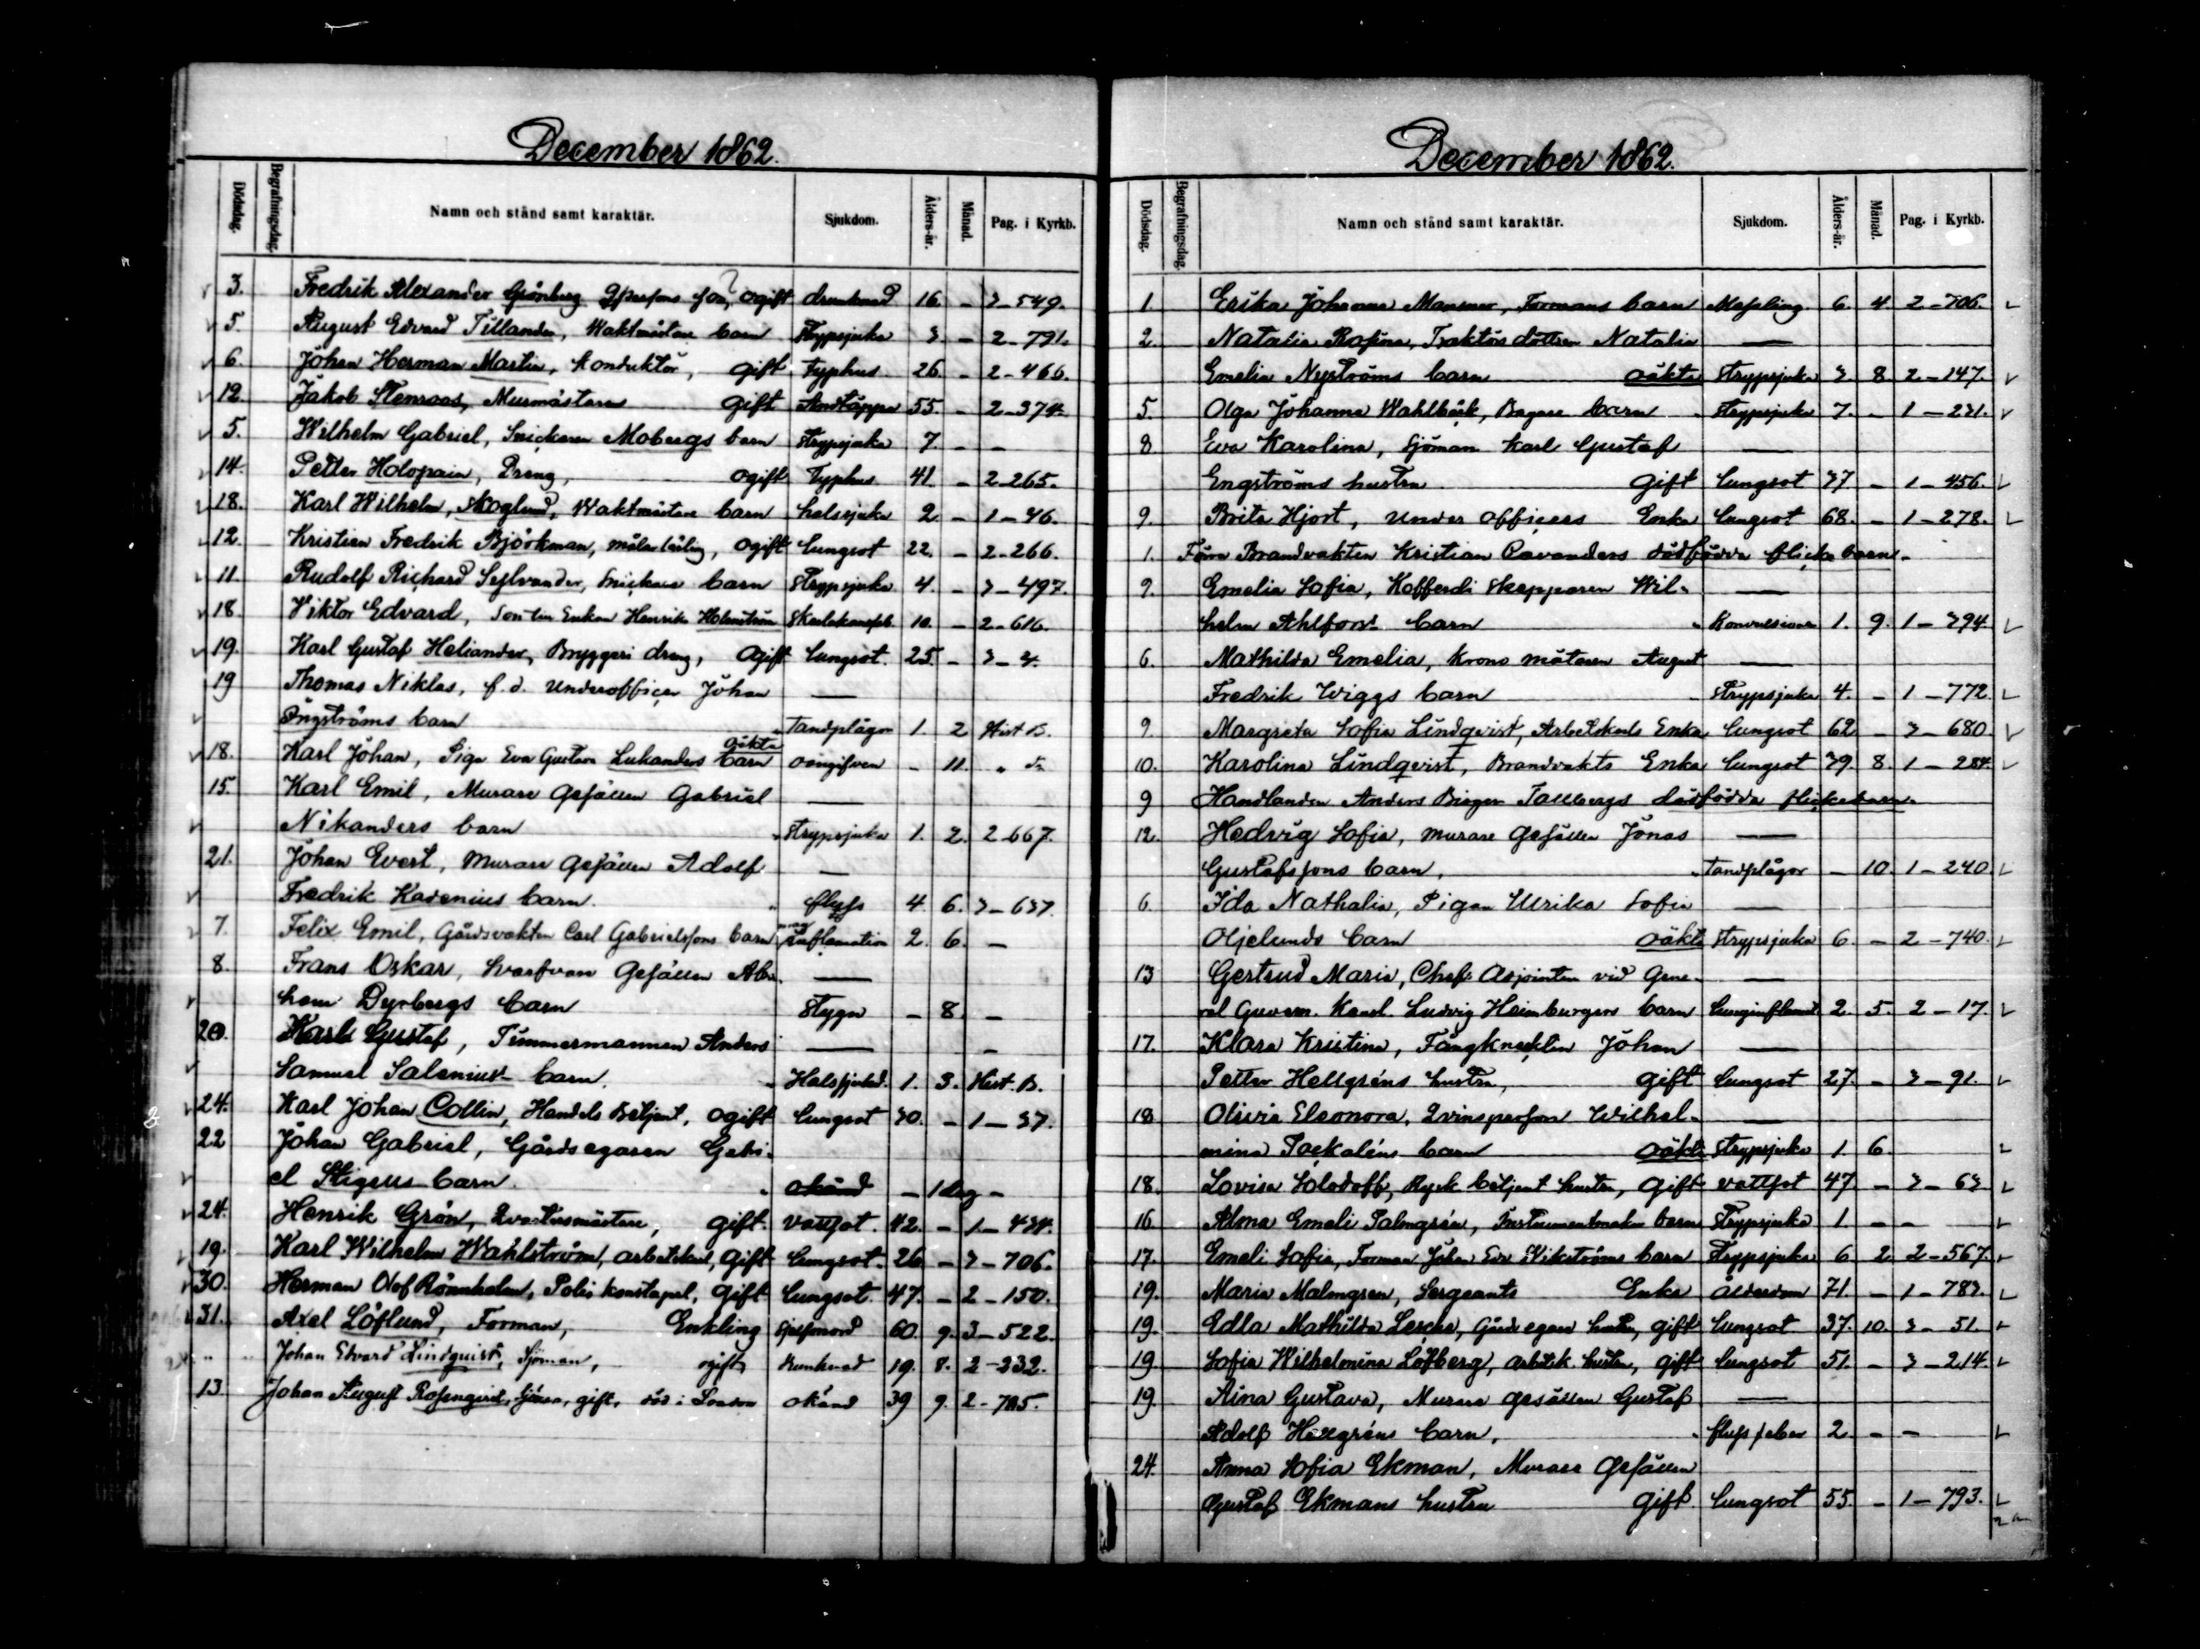 December 1862.
Dödsdag. Begrafningsdag. Namn och stånd samt karaktär. Sjukdom. Ålders-år. Månad. Pag. i Kyrkb.
3. Fredrik Alexander Grönberg ogift drunknad 16. - 3-549.
5. August Edvard Tillander, Waktmästare barn Strypsjuka 3. - 2-791.
6. Johan Herman Martin, Konduktör, gift Typhus 26. - 2-466.
12. Jakob Stenroos, Murmästare gift Andtäppa 55. - 2-374.
5. Wilhelm Gabriel, Snickaren Mobergs barn Strypsjuka 7. - -
14. Petter Holopain, Dreng, ogift Typhus 41. - 2-265.
18. Karl Wilhelm, Skoglund, Waktmästare barn halssjuka 2. - 1-46.
12. Kristian Fredrik Björkman, målar lärling, ogift lungsot 22. - 2-266.
11. Rudolf Richard Sylvander, Snickare barn Strypsjuka 4. - 3-497.
18. Viktor Edvard, Son till Enkan Henrika Holmström 10. - 2-616.
19. Karl Gustaf Heliander, Bryggeri dreng, ogift lungsot. 25. - 3-4.
19 Thomas Niklas, f.d. Underofficer Johan —
Ångströms barn Tandplågor 1. 2 Hist B.
18. Karl Johan, Piga Eva Gustava Lukanders oäkta barn oangifven - 11. " do
15. Karl Emil, Murare Gesällen Gabriel —
Nikanders barn " Strypsjuka 1. 2. 2-667.
21. Johan Evert, Murare Gesällen Adolf —
Fredrik Kadenius barn. " flyss 4. 6. 3-637.
7. Felix Emil, Gårdsvakten Carl Gabrielssons barn inflamation 2. 6. -
8. Frans Oskar, Svarfvare Gesällen Abra- —
ham Dyrbergs barn Stygn - 8. -
20. Karl Gustaf, Timmermannen Anders — -
Samuel Salenius barn. " Halssjukd. 1. 3. Hist. B.
24. Karl Johan Collin, Handels Betjent, ogift lungsot 30. - 1-37.
22 Johan Gabriel, Gårdsegaren Gabri-
el Stigells barn. " okänd - 1 dag -
24. Henrik Grön, Qvartersmästare, gift. vattsot. 42. - 1-434.
19. Karl Wilhelm Wahlström, arbetskarl, gift lungsot. 26 - 3-706.
30. Herman Olof Rönnholm, Polis konstapel, gift lungsot. 47. - 2-150.
31. Axel Löflund, Forman, Enkling Sjelfmord 60. 9. 3-522.
" " Johan Edvard Lindquist, Sjöman, ogift drunknad 19. 8. 2-232.
13 Johan August Rosenqvist, Sjöman, gift, död i London okänd 39 9. 2-785.
December 1862.
Dödsdag. Begrafningsdag. Namn och stånd samt karaktär. Sjukdom. Ålders-år. Månad. Pag. i Kyrkb.
1. Erika Johanna Mansner, Formans barn Messling 6. 4 2-706.
2 Natalia Rosina, Traktörs dottren Natalia —
Emelia Nyströms barn oäkta Strypsjuka 3. 8 2-147.
5. Olga Johanna Wahlbäck, Bagare barn " Strypsjuka 7. - 1-231.
8 Eva Karolina, Sjöman Karl Gustaf —
Engströms hustru gift lungsot 37 - 1-456.
9. Brita Hjort, Under officers Enka lungsot 68. - 1-278.
1. Förra Brandvakten Kristian Cavanders dödfödda flicka barn.
9. Emelia Sofia, Kofferdi Skepparen Wil- —
helm Ahlfors barn " Konvulsioner 1. 9. 1-394
6. Mathilda Emelia, krono mätaren August —
Fredrik Wiggs barn " Strypsjuka 4. - 1-772.
9. Margreta Sofia Lindqvist, Arbetskarls Enka lungsot 62 - 3-680.
10. Karolina Lindqvist, Brandvakts Enka lungsot 39. 8. 1-284.
9 Handlanden Anders Birger Tallbergs dödfödda flickebarn.
12. Hedvig Sofia, murare Gesällen Jonas —
Gustafssons barn, " Tandplågor - 10. 1-240
6. Ida Nathalia, Pigan Ulrika Sofia —
Oljelunds barn oäkta Strypsjuka 6. - 2-740.
13 Gertrud Maria, Chefs Adjointen vid Gene- —
ral Guvern. Kansl. Ludvig Heimburgers barn 2. 5. 2-17.
17. Klara Kristina, Fångknekten Johan —
Petter Hellgréns hustru, gift lungsot 27. - 3-91.
18 Olivia Eleonora, Qvinsperson Wilhel- —
mina Packaléns barn oäkta Strypsjuka 1. 6.
18. Lovisa Solodoff, Ryck betjent hustru, gift vattsot 47 - 3-63
16. Alma Emeli Palmgrén, Instrumentmakar barn Strypsjuka 1. - -
17. Emeli Sofia, Forman Johan Edv. Wikströms barn Strypsjuka 6 2. 2-567.
19. Maria Malmgren, Sergeants Enka ålderdom 71. - 1-783.
19. Edla Mathilda, Gårdsegare hustru, gift lungsot 37. 10. 3-51.
19 Sofia Wilhelmina Löfberg, arbetsk. hustru, gift lungsot 51. - 3-214.
19. Aina Gustava, Murare gesällen Gustaf —
Adolf Hellgréns barn, " flyss feber 2. - -
24. Anna Sofia Ekman, Murare Gesällen
Gustaf Ekmans hustru gift lungsot 55. - 1-793.